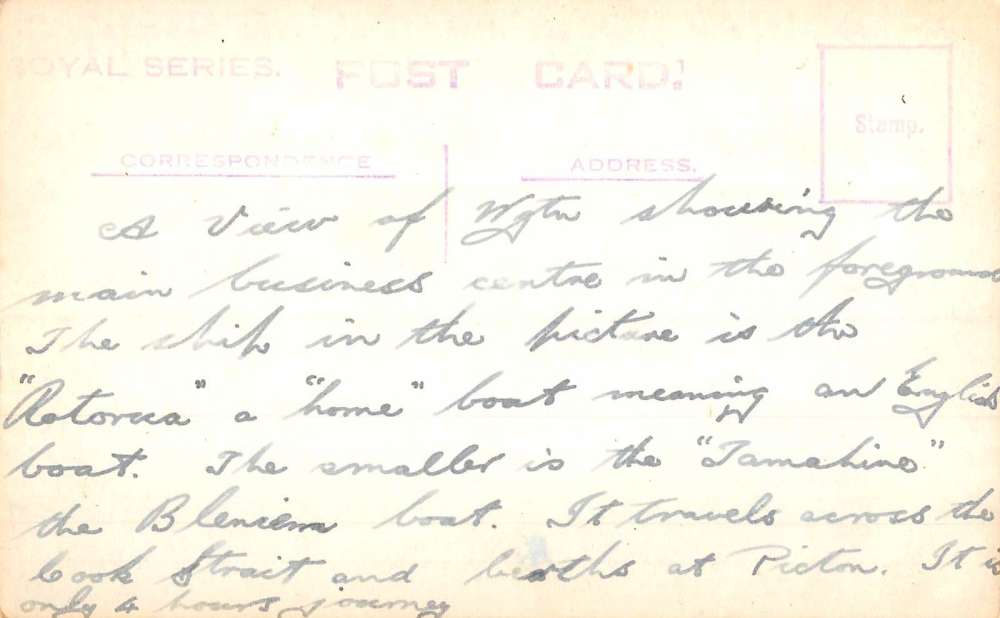 ROYAL SERIES.
POST CARD.
Stamp.
CORRESPONDENCE
ADDRESS.
A View of Wgtn showing the
main business centre in the foreground
The ship in the picture is the
"Rotorua" a "home" boat meaning an English
boat. The smaller is the "Tamahine"
the boat. It travels across the
Cook Strait and berths at Picton. It is
only 4 hours journey